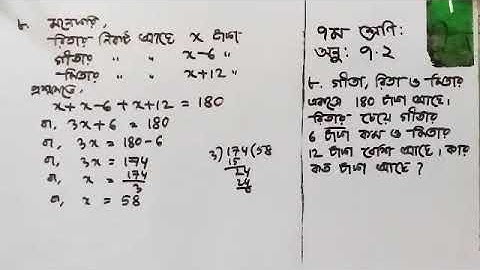 ৮. মনেকরি,
রিতার নিকট আছে x টাকা
গীতার " " x-6 "
মিতার " " x+12 "
প্রশ্নমতে,
x + x-6 + x+12 = 180
বা, 3x+6 = 180
বা, 3x = 180-6
বা, 3x = 174
বা, x = 174/3
বা, x = 58
3) 174 (58
15
24
24
৭ম শ্রেণি:
অনু: ৭.২
৮. গীতা, রিতা ও মিতার
একত্রে 180 টাকা আছে।
রিতার চেয়ে গীতার
6 টাকা কম ও মিতার
12 টাকা বেশি আছে। কার
কত টাকা আছে?